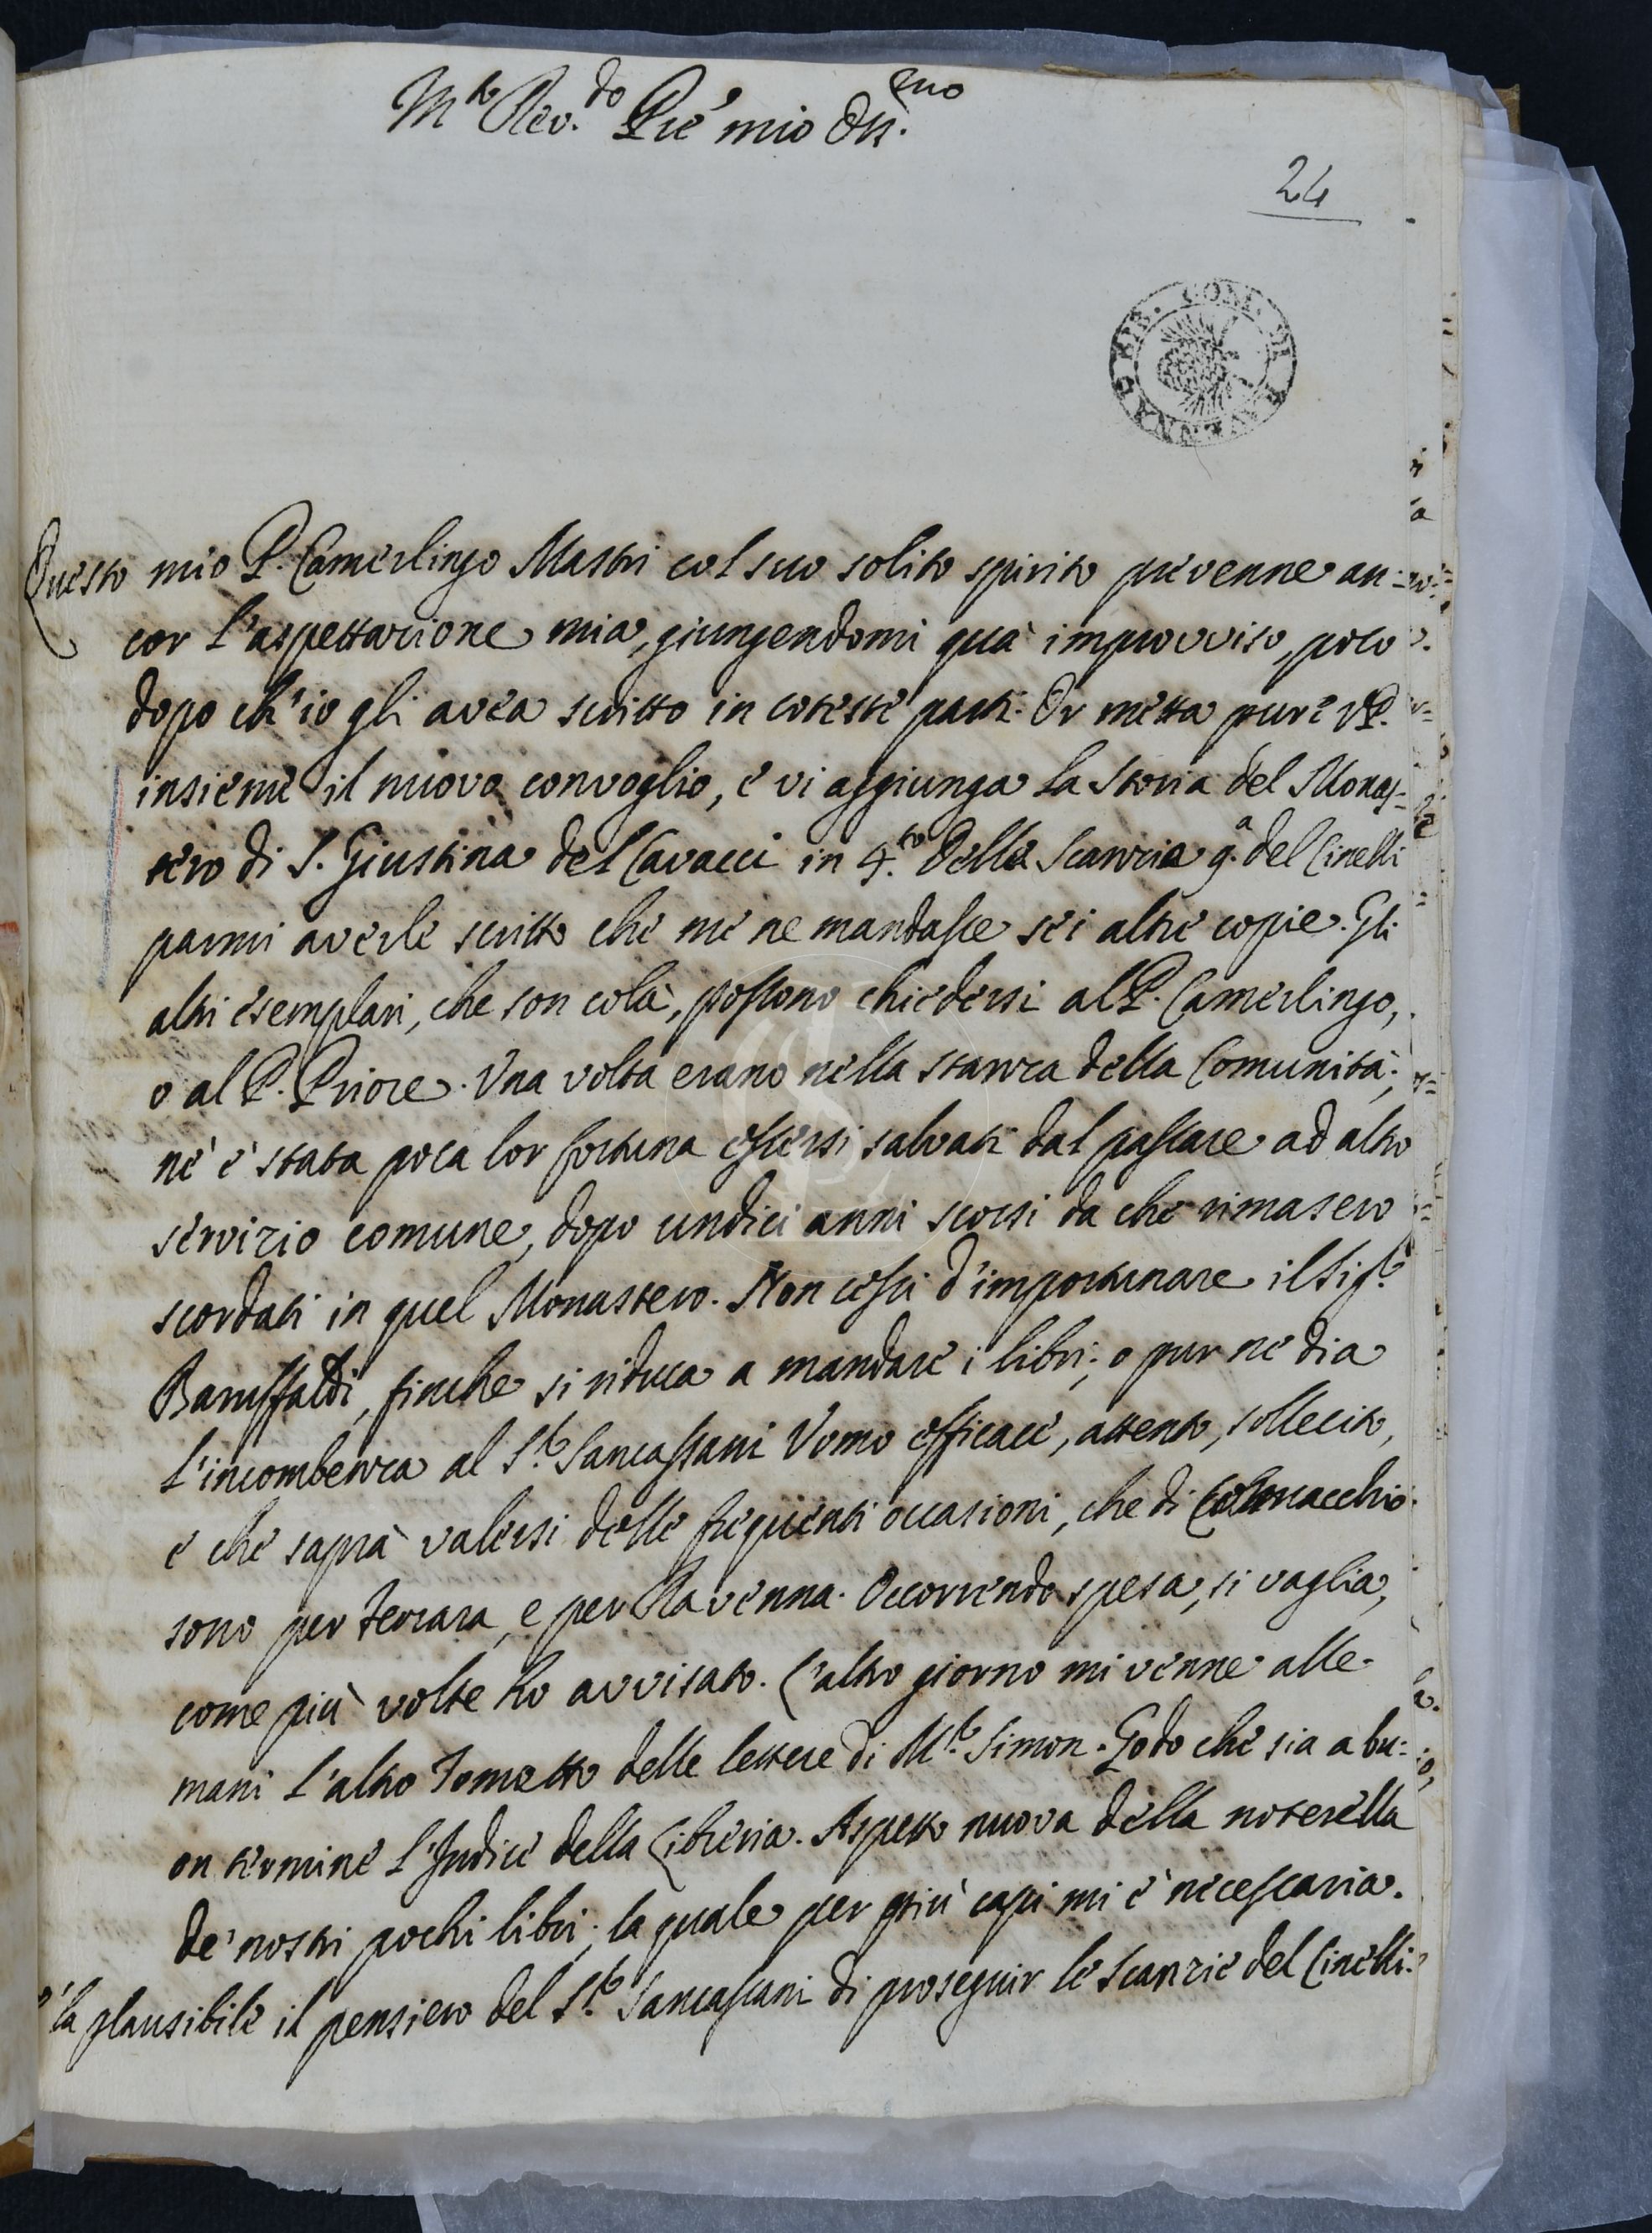 M.to Rev.do P're mio Oss.mo
24
BIB. COM. DI RAVENNA
Questo mio P. Camerlingo Mastri col suo solito spirito prevenne an=
cor l'aspettazione mia, giungendomi quà improvviso, poco
dopo ch'io gli avea scritto in coteste parti. Or metta pure V.P.
insieme il nuovo convoglio, e vi aggiunga la Storia del Monas=
tero di S. Giustina del Cavacci in 4.to Della Scanzia 9.a del Cinelli
parmi averle scritto che me ne mandasse sei altre copie. Gli
altri esemplari, che son colà, possono chiedersi al P. Camerlingo,
o al P. Priore. Una volta erano nella stanza della Comunità;
nè è stata poca lor fortuna essersi salvati dal passare ad altro
servizio comune, dopo undici anni scorsi da che rimasero
scordati in quel Monastero. Non cessi d'importunare il Sig.r
Baruffaldi, finche si riduca a mandare i libri; o pur ne dia
l'incombenza al S.r Sancassani Uomo efficace, attento, sollecito,
e che saprà valersi delle frequenti occasioni, che di Comacchio
sono per Ferrara, e per Ravenna. Occorrendo spesa, si vaglia,
come più volte ho avvisato. L'altro giorno mi venne alle
mani l'altro Tometto delle lettere di M.r Simon. Godo che sia a bu=
on termine l'Indice della Libreria. Aspetto nuova della noterella
de' nostri pochi libri; la quale per più capi mi è necessaria.
È la plausibile il pensiero del S.r Sancassani di proseguir le Scanzie del Cinelli.